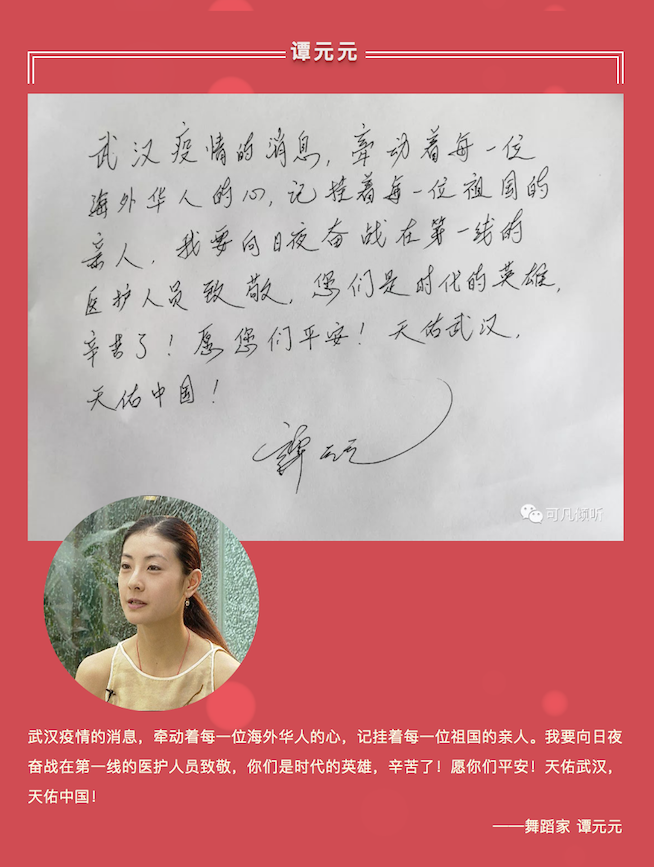 谭元元
武汉疫情的消息，牵动着每一位
海外华人的心，记挂着每一位祖国的
亲人，我要向日夜奋战在第一线的
医护人员致敬，您们是时代的英雄，
辛苦了！愿您们平安！天佑武汉，
天佑中国！
谭元元
可凡倾听
武汉疫情的消息，牵动着每一位海外华人的心，记挂着每一位祖国的亲人。我要向日夜
奋战在第一线的医护人员致敬，你们是时代的英雄，辛苦了！愿你们平安！天佑武汉，
天佑中国！
——舞蹈家 谭元元